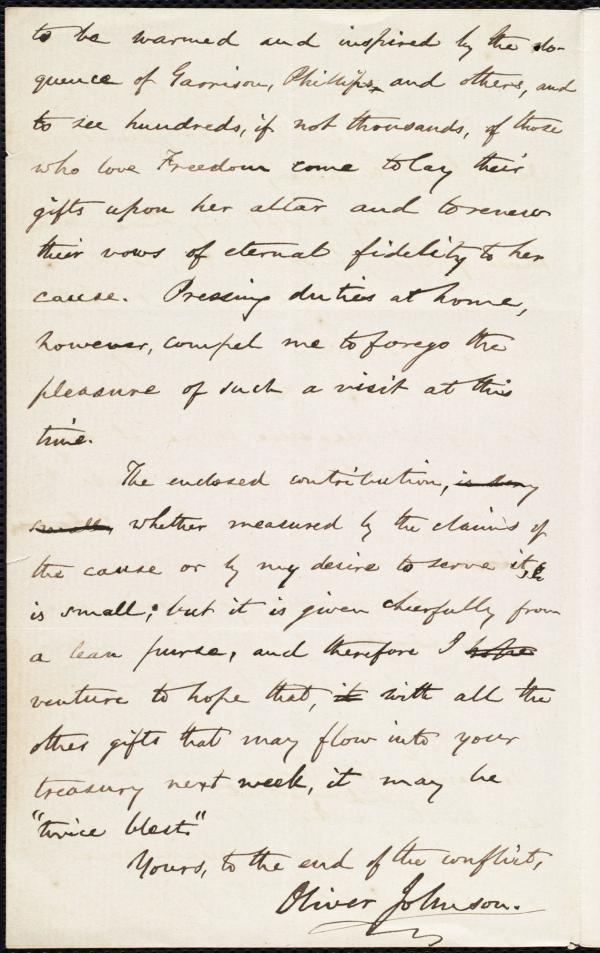 to be warmed and inspired by the elo-
quence of Garrison, Phillips, and others, and
to see hundreds, if not thousands, of those
who love Freedom come to lay their
gifts upon her altar and to renew
their vows of eternal fidelity to her
cause. Pressing duties at home,
however, compel me to forego the
pleasure of such a visit at this
time.
The enclosed contribution, is very
small, whether measured by the claims of
the cause or by my desire to serve it,
is small; but it is given cheerfully from
a lean purse, and therefore I hope
venture to hope that, it with all the
other gifts that may flow into your
treasury next week, it may be
"twice blest."
Yours, to the end of the conflict,
Oliver Johnson.